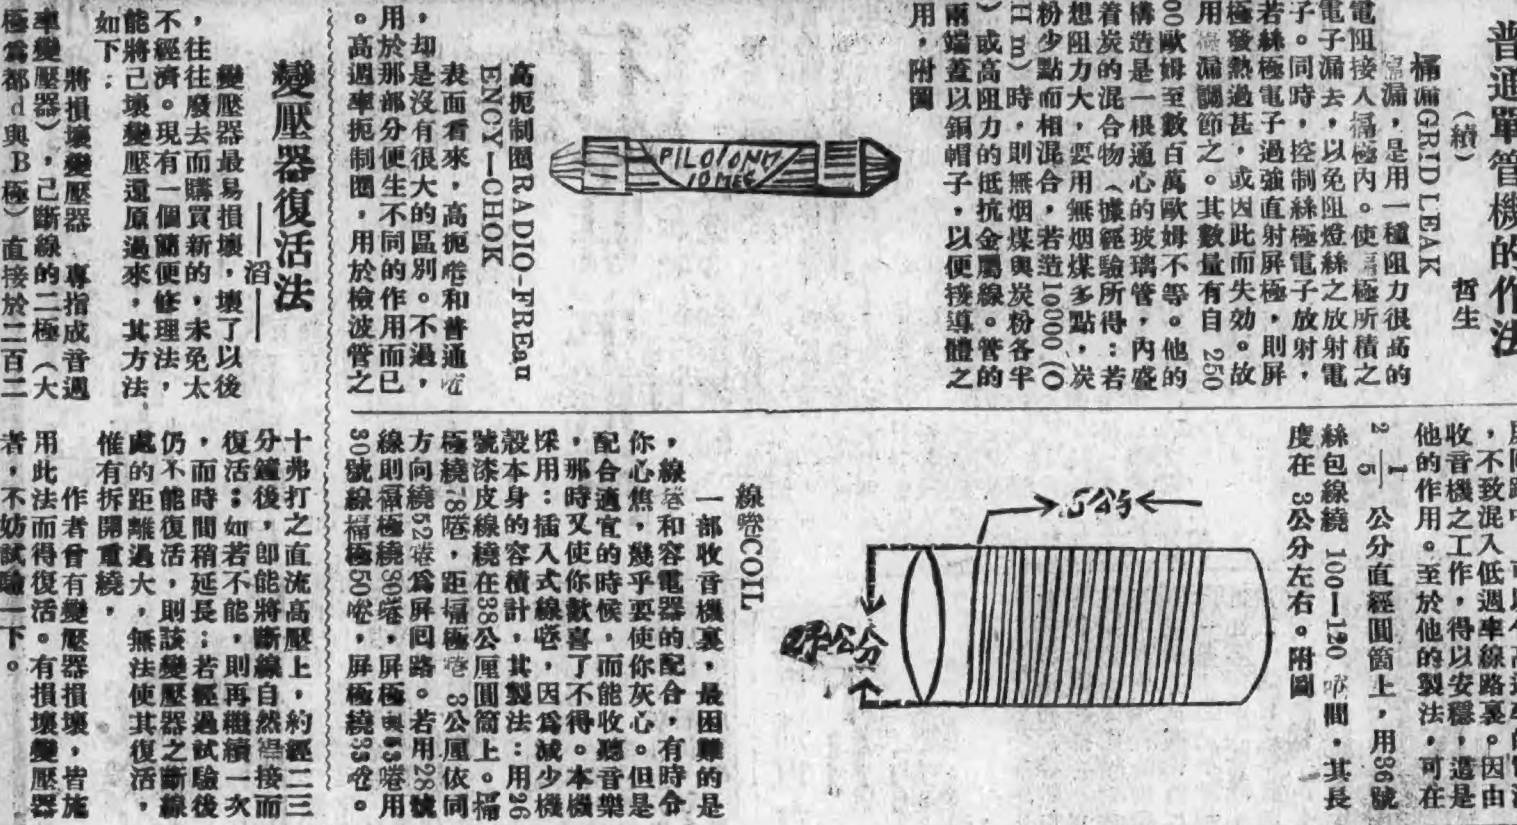 普通單管機的作法
(續)
哲生
柵漏GRID LEAK
漏,是用一種阻力很高的
電阻接入柵極內。使柵極所積之
電子漏去,以免阻燈絲之放射電
子。同時,控制絲極電子放射,
若絲極電子過強直射屏極,則屏
極發熱過甚,或因此而失効。故
用柵漏調節之。其數量有自 250
00歐姆至數百萬歐姆不等。他的
構造是一根通心的玻璃管,內盛
着炭的混合物(據經驗所得:若
想阻力大,要用無烟煤多點,炭
粉少點而相混合,若造10000(O
Hm)時,則無烟煤與炭粉各半
)或高阻力的抵抗金屬線。管的
兩端蓋以銅帽子,以便接導體之
用,附圖
PILOTOHM
10 MEG
高扼制圈RADIO-FREau
ENCY—CHOK
表面看來,高扼捲和普通捲
,却是沒有很大的區別。不過,
用於那部分便生不同的作用而已
。高週率扼制圈,用於檢波管之
,不致混入低週率線路裏。因由
收音機之工作,得以安穩,這是
他的作用。至於他的製法,可在
2 1/5 公分直經圓筒上,用36號
絲包線繞 100—120 捲間,其長
度在 3公分左右。附圖
5公分
線捲COIL
一部收音機裏,最困難的是
,線捲和容電器的配合,有時令
你心焦,幾乎要使你灰心。但是
配合適宜的時候,而能收聽音樂
,那時又使你歡喜了不得。本機
採用:插入式線捲,因爲減少機
殼本身的容積計,其製法:用26
號漆皮線繞在38公厘圓筒上。柵
極繞78捲,距柵極捲 3公厘依同
方向繞52捲爲屏囘路。若用28號
線則柵極繞80捲,屏極與53捲用
30號線柵極50捲,屏極繞33捲。
變壓器復活法
——滔——
變壓器最易損壞,壞了以後
,往往廢去而購買新的,未免太
不經濟。現有一個簡便修理法,
能將已壞變壓還原過來,其方法
如下:
將損壞變壓器 專指成音週
率變壓器),已斷線的二極(大
極爲都d與B極)直接於二百二
十弗打之直流高壓上,約經二三
分鐘後,卽能將斷線自然接而
復活;如若不能,則再繼續一次
,而時間稍延長;若經過試驗後
仍不能復活,則該變壓器之斷線
處的距離過大,無法使其復活,
惟有拆開重繞,
作者曾有變壓器損壞,皆施
用此法而得復活。有損壞變壓器
者,不妨試驗一下。